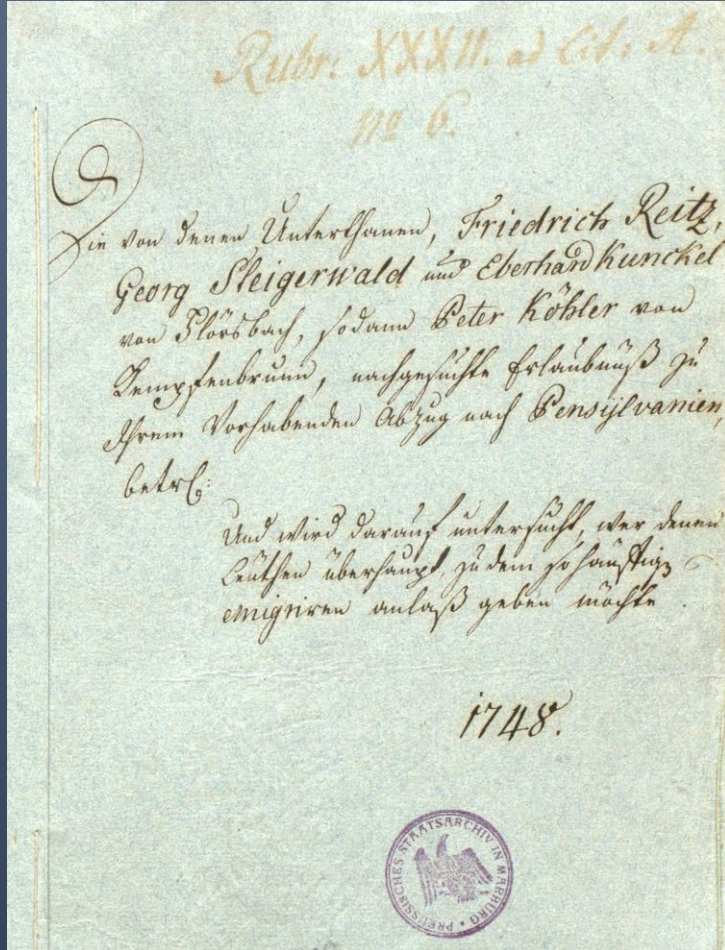 Rubr: XXXII. ad Lit: A.
no 6.
Die von denen Unterthanen, Friedrich Reitz,
Georg Steigerwald und Eberhard Kunckel
von Flörsbach, sodann Peter Köhler von
Kempfenbrunn, nachgesuchte Erlaubnüß zu
Ihrem Vorhabenden Abzug nach Pensylvanien,
betrf:
Und wird darauf untersucht, wer denen
Leuthen überhaupt, zu dem so häuffigen
emigriren anlaß geben möchte.
1748.
PREUSSISCHES STAATSARCHIV IN MARBURG